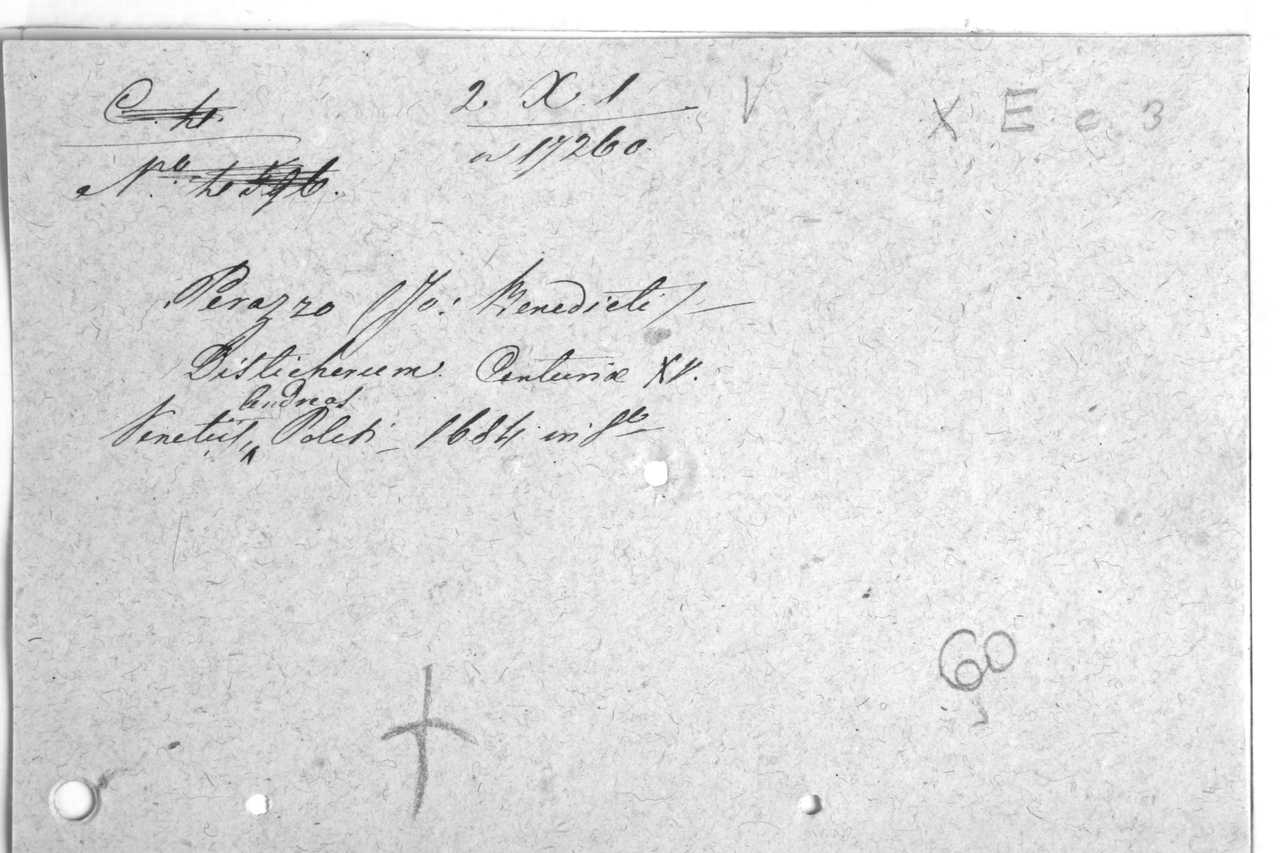 2. X. 1
V
X E c 3
17260.
Perazzo (Jo: Benedicti)
Distichorum Centuriæ XV.
Andreas
Venetiis, Poleti 1684 in 8º
60